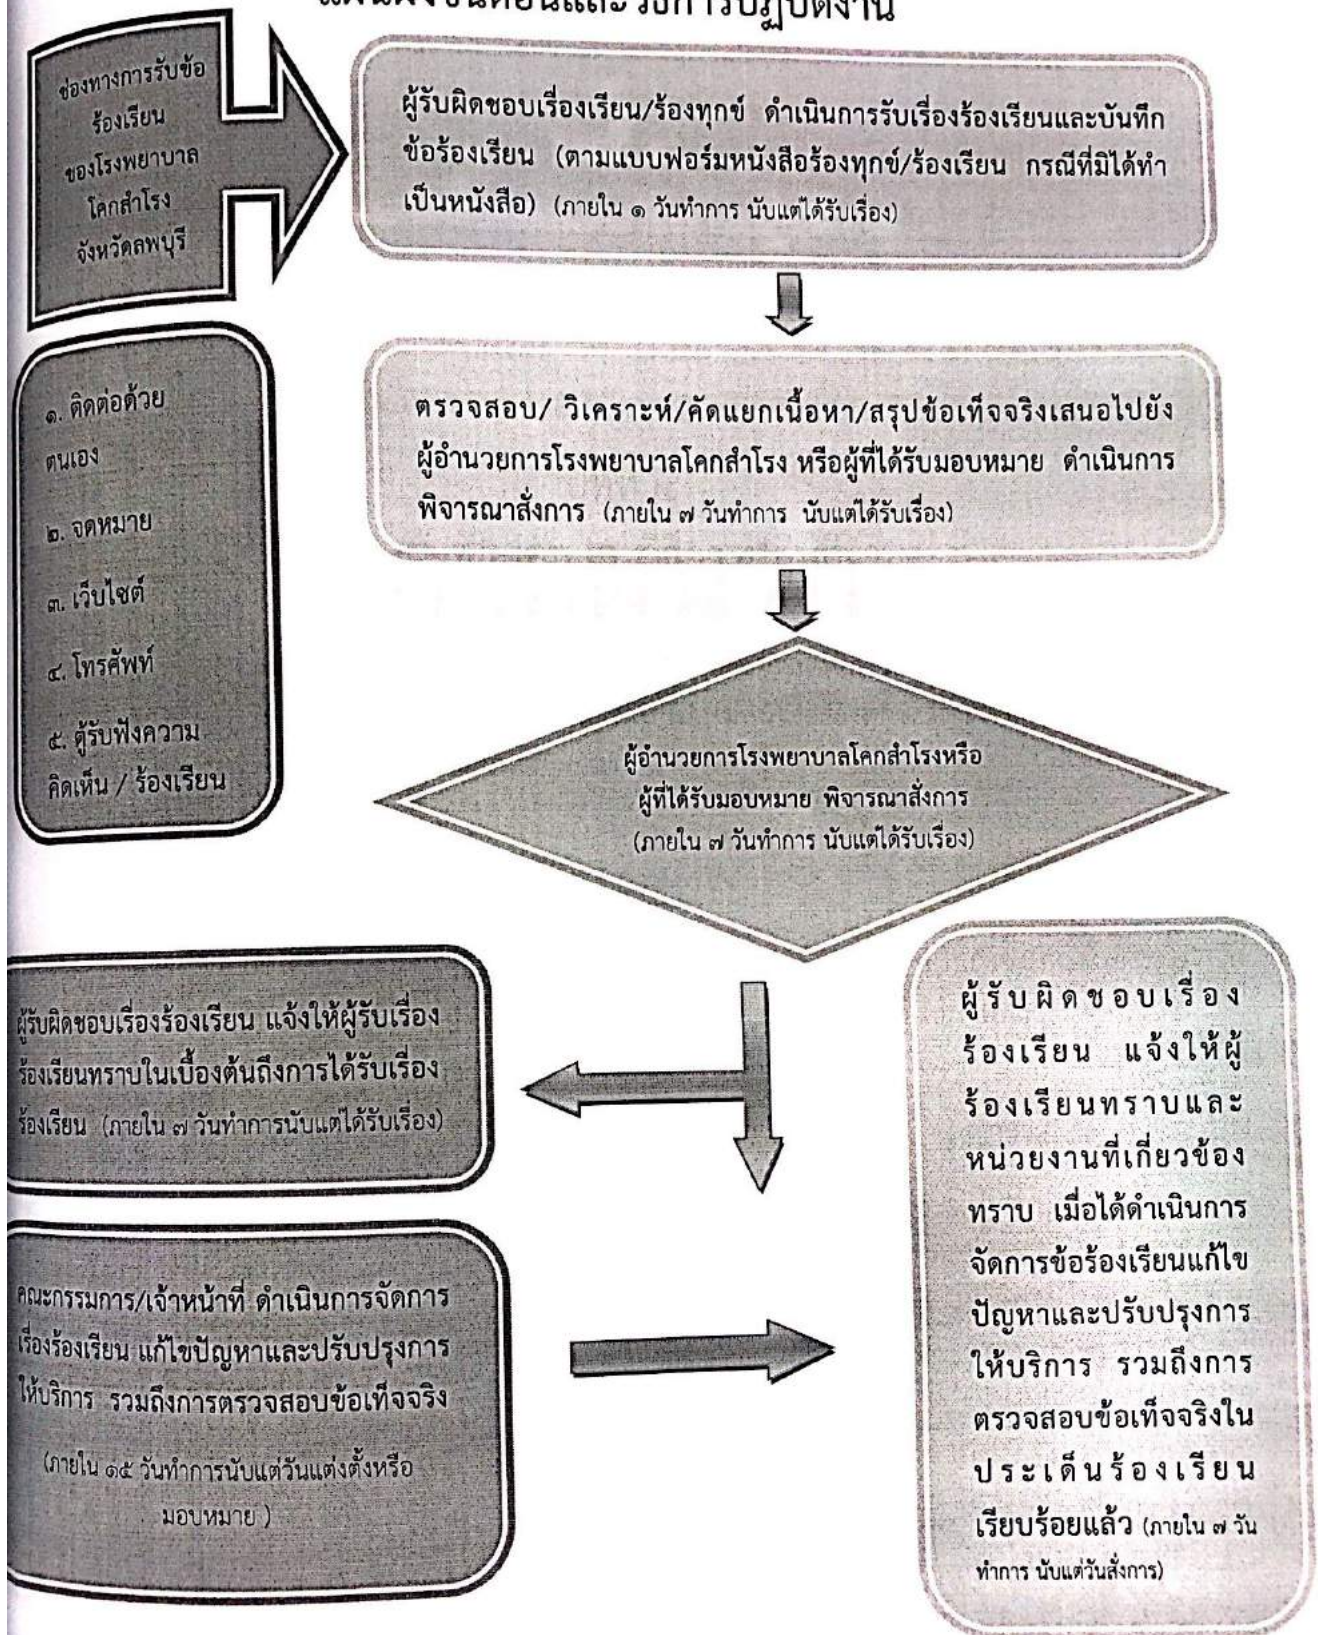 แผนผังขั้นตอนและวิธีการปฏิบัติงาน
ช่องทางการรับข้อ
ร้องเรียน
ของโรงพยาบาล
โคกสำโรง
จังหวัดลพบุรี
ผู้รับผิดชอบเรื่องเรียน/ร้องทุกข์ ดำเนินการรับเรื่องร้องเรียนและบันทึก
ข้อร้องเรียน (ตามแบบฟอร์มหนังสือร้องทุกข์/ร้องเรียน กรณีที่มิได้ทำ
เป็นหนังสือ) (ภายใน ๑ วันทำการ นับแต่ได้รับเรื่อง)
๑. ติดต่อด้วย
ตนเอง
๒. จดหมาย
๓. เว็บไซต์
๔. โทรศัพท์
๕. ตู้รับฟังความ
คิดเห็น / ร้องเรียน
ตรวจสอบ/ วิเคราะห์/คัดแยกเนื้อหา/สรุปข้อเท็จจริงเสนอไปยัง
ผู้อำนวยการโรงพยาบาลโคกสำโรง หรือผู้ที่ได้รับมอบหมาย ดำเนินการ
พิจารณาสั่งการ (ภายใน ๗ วันทำการ นับแต่ได้รับเรื่อง)
ผู้อำนวยการโรงพยาบาลโคกสำโรงหรือ
ผู้ที่ได้รับมอบหมาย พิจารณาสั่งการ
(ภายใน ๗ วันทำการ นับแต่ได้รับเรื่อง)
ผู้รับผิดชอบเรื่องร้องเรียน แจ้งให้ผู้รับเรื่อง
ร้องเรียนทราบในเบื้องต้นถึงการได้รับเรื่อง
ร้องเรียน (ภายใน ๗ วันทำการนับแต่ได้รับเรื่อง)
คณะกรรมการ/เจ้าหน้าที่ ดำเนินการจัดการ
เรื่องร้องเรียน แก้ไขปัญหาและปรับปรุงการ
ให้บริการ รวมถึงการตรวจสอบข้อเท็จจริง
(ภายใน ๑๕ วันทำการนับแต่วันแต่งตั้งหรือ
มอบหมาย )
ผู้รับผิดชอบเรื่อง
ร้องเรียน แจ้งให้ผู้
ร้องเรียนทราบและ
หน่วยงานที่เกี่ยวข้อง
ทราบ เมื่อได้ดำเนินการ
จัดการข้อร้องเรียนแก้ไข
ปัญหาและปรับปรุงการ
ให้บริการ รวมถึงการ
ตรวจสอบข้อเท็จจริงใน
ประเด็นร้องเรียน
เรียบร้อยแล้ว (ภายใน ๗ วัน
ทำการ นับแต่วันสั่งการ)